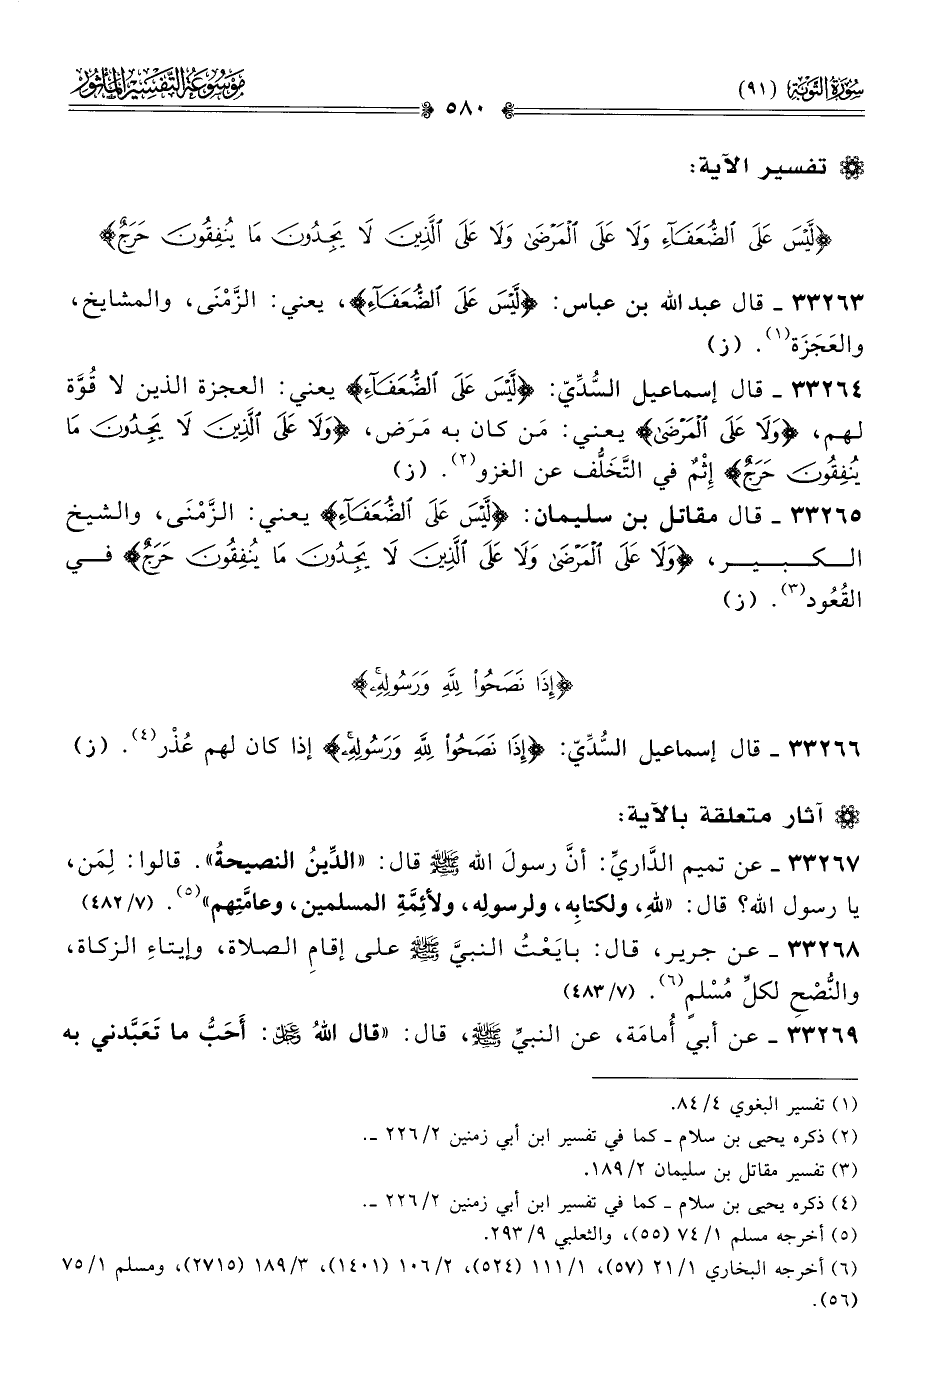 سُورَةُ التَّوْبَةِ (٩١)
٥٨٠
مَوْسُوعَةُ التَّفْسِيرِ المَأْثُورِ
تفسير الآية:
﴿لَّيْسَ عَلَى ٱلضُّعَفَآءِ وَلَا عَلَى ٱلْمَرْضَىٰ وَلَا عَلَى ٱلَّذِينَ لَا يَجِدُونَ مَا يُنفِقُونَ حَرَجٌ﴾
٣٣٢٦٣ ـ قال عبد الله بن عباس: ﴿لَّيْسَ عَلَى ٱلضُّعَفَآءِ﴾، يعني: الزَّمْنَى، والمشايخ،
والعَجَزَة(١). (ز)
٣٣٢٦٤ ـ قال إسماعيل السُّدِّيّ: ﴿لَّيْسَ عَلَى ٱلضُّعَفَآءِ﴾ يعني: العجزة الذين لا قُوَّة
لهم، ﴿وَلَا عَلَى ٱلْمَرْضَىٰ﴾ يعني: مَن كان به مَرَض، ﴿وَلَا عَلَى ٱلَّذِينَ لَا يَجِدُونَ مَا
يُنفِقُونَ حَرَجٌ﴾ إثْمٌ في التَّخَلُّف عن الغزو(٢). (ز)
٣٣٢٦٥ ـ قال مقاتل بن سليمان: ﴿لَّيْسَ عَلَى ٱلضُّعَفَآءِ﴾ يعني: الزَّمْنَى، والشيخ
الكبير، ﴿وَلَا عَلَى ٱلْمَرْضَىٰ وَلَا عَلَى ٱلَّذِينَ لَا يَجِدُونَ مَا يُنفِقُونَ حَرَجٌ﴾ في
القُعُود(٣). (ز)
﴿إِذَا نَصَحُوا۟ لِلَّهِ وَرَسُولِهِۦ﴾
٣٣٢٦٦ ـ قال إسماعيل السُّدِّيّ: ﴿إِذَا نَصَحُوا۟ لِلَّهِ وَرَسُولِهِۦ﴾ إذا كان لهم عُذْر(٤). (ز)
آثار متعلقة بالآية:
٣٣٢٦٧ ـ عن تميم الدَّاريِّ: أنَّ رسولَ الله ﷺ قال: «الدِّينُ النصيحةُ». قالوا: لِمَن،
يا رسول الله؟ قال: «للهِ، ولكتابِه، ولرسولِه، ولأئِمَّةِ المسلمين، وعامَّتِهم»(٥). (٧/٤٨٢)
٣٣٢٦٨ ـ عن جرير، قال: بايَعْتُ النبيَّ ﷺ على إقامِ الصلاة، وإيتاءِ الزكاة،
والنُّصْحِ لكلِّ مُسْلمٍ(٦). (٧/٤٨٣)
٣٣٢٦٩ ـ عن أبي أُمامَة، عن النبيِّ ﷺ، قال: «قال اللهُ ﷿: أَحَبُّ ما تَعَبَّدني به
(١) تفسير البغوي ٤/٨٤.
(٢) ذكره يحيى بن سلام ـ كما في تفسير ابن أبي زمنين ٢/٢٢٦ ـ.
(٣) تفسير مقاتل بن سليمان ٢/١٨٩.
(٤) ذكره يحيى بن سلام ـ كما في تفسير ابن أبي زمنين ٢/٢٢٦ ـ.
(٥) أخرجه مسلم ١/٧٤ (٥٥)، والثعلبي ٩/٢٩٣.
(٦) أخرجه البخاري ١/٢١ (٥٧)، ١/١١١ (٥٢٤)، ٢/١٠٦ (١٤٠١)، ٣/١٨٩ (٢٧١٥)، ومسلم ١/٧٥
(٥٦).